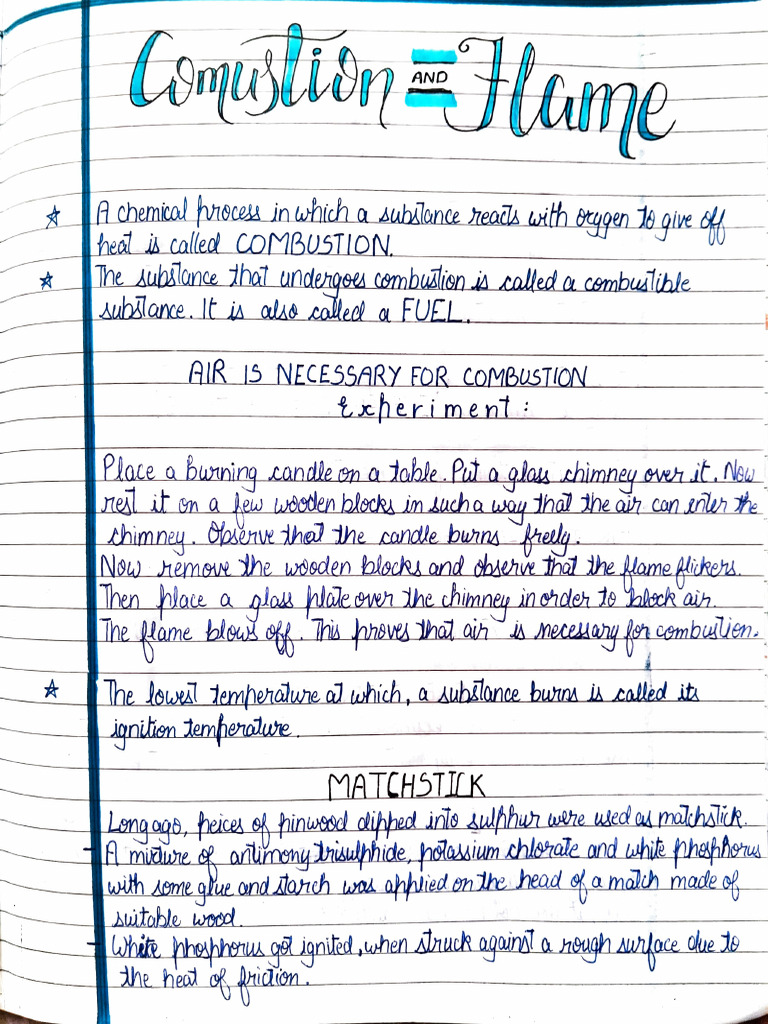 Comustion AND Flame
☆ A chemical process in which a substance reacts with oxygen to give off
heat is called COMBUSTION.
☆ The substance that undergoes combustion is called a combustible
substance. It is also called a FUEL.
AIR IS NECESSARY FOR COMBUSTION
Experiment :
Place a burning candle on a table. Put a glass chimney over it. Now
rest it on a few wooden blocks in such a way that the air can enter the
chimney. Observe that the candle burns freely.
Now remove the wooden blocks and observe that the flame flickers.
Then place a glass plate over the chimney in order to block air.
The flame blows off. This proves that air is necessary for combustion.
☆ The lowest temperature at which, a substance burns is called its
ignition temperature.
MATCHSTICK
Long ago, peices of pinwood dipped into sulphur were used as matchstick.
- A mixture of antimony trisulphide, potassium chlorate and white phosphorus
with some glue and starch was applied on the head of a match made of
suitable wood.
- White phosphorus got ignited, when struck against a rough surface due to
the heat of friction.